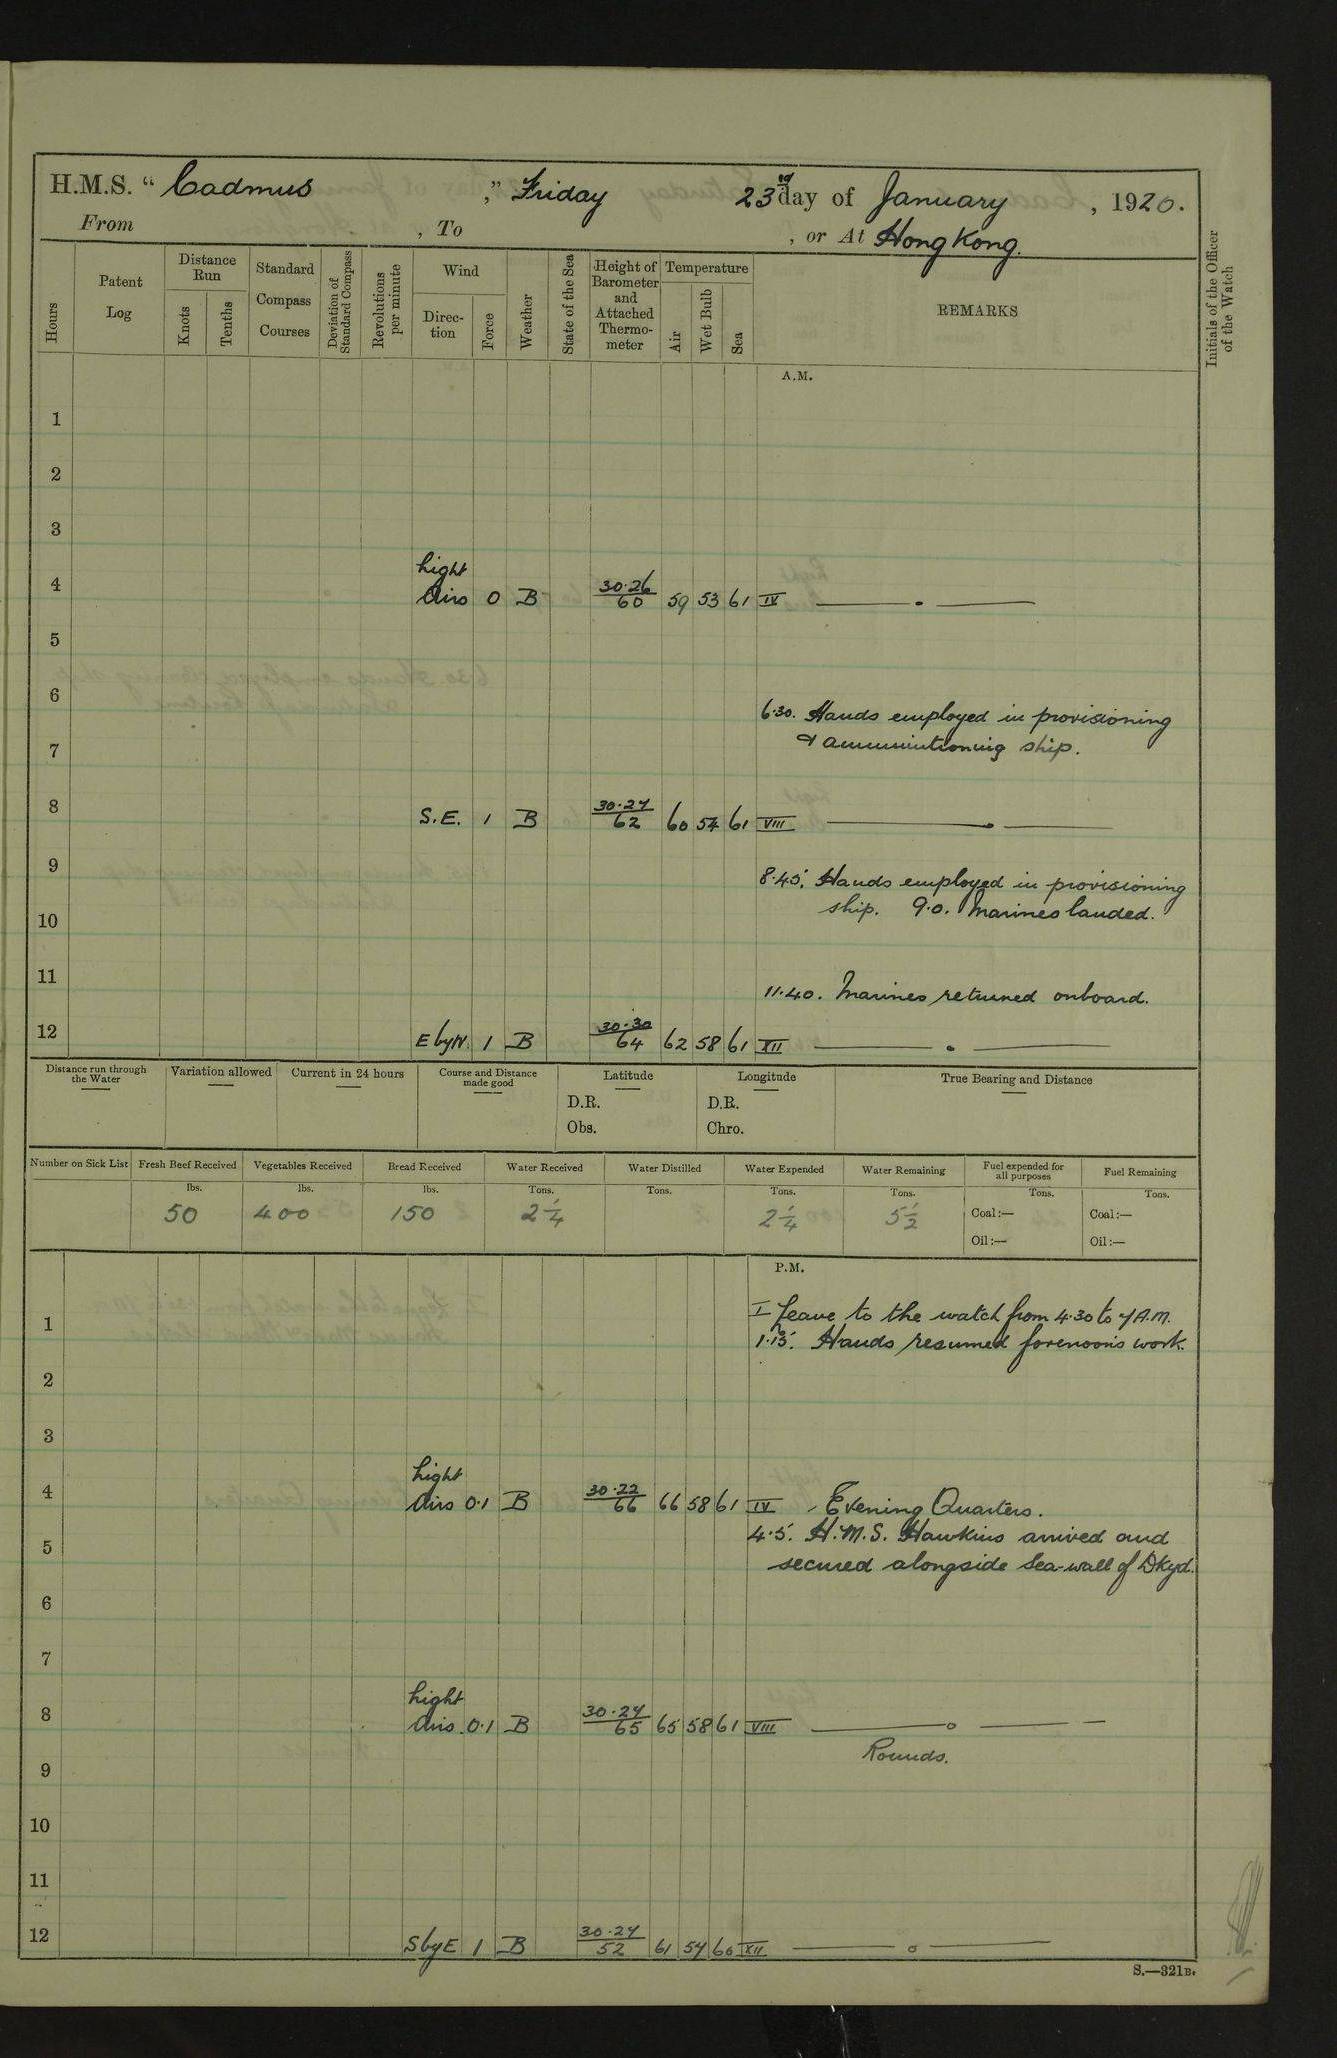 H.M.S. “ Cadmus ,” Friday 23rd day of January , 1920.
From , To , or At Hong Kong.
Hours
Patent Log
Distance Run
Knots
Tenths
Standard Compass Courses
Deviation of Standard Compass
Revolutions per minute
Wind
Direc-tion
Force
Weather
State of the Sea
Height of Barometer and Attached Thermo-meter
Temperature
Air
Wet Bulb
Sea
REMARKS
Initials of the Officer of the Watch
A.M.
1
2
3
Light
4 Airs 0 B 30.26/60 59 53 61 IV
5
6
6.30. Hands employed in provisioning
7 & ammunitioning ship.
8 S.E. 1 B 30.27/62 60 54 61 VIII
9 8.45. Hands employed in provisioning
ship. 9.0. Marines landed.
10
11 11.40. Marines returned onboard.
12 E by N. 1 B 30.30/64 62 58 61 XII
Distance run through the Water
Variation allowed
Current in 24 hours
Course and Distance made good
Latitude
D.R.
Obs.
Longitude
D.R.
Chro.
True Bearing and Distance
Number on Sick List
Fresh Beef Received lbs. 50
Vegetables Received lbs. 400
Bread Received lbs. 150
Water Received Tons. 2 1/4
Water Distilled Tons.
Water Expended Tons. 2 1/4
Water Remaining Tons. 5 1/2
Fuel expended for all purposes Tons.
Coal:—
Oil:—
Fuel Remaining Tons.
Coal:—
Oil:—
P.M.
1 I Leave to the watch from 4.30 to 7 A.M.
1.15. Hands resumed forenoons work.
2
3
Light
4 Airs 0.1 B 30.22/66 66 58 61 IV Evening Quarters.
4.5. H.M.S. Hawkins arrived and
5 secured alongside Sea-wall of Dkyd.
6
7
Light
8 Airs 0.1 B 30.24/65 65 58 61 VIII
Rounds.
9
10
11
12 S by E 1 B 30.27/52 61 54 60 XII
S.—321B.